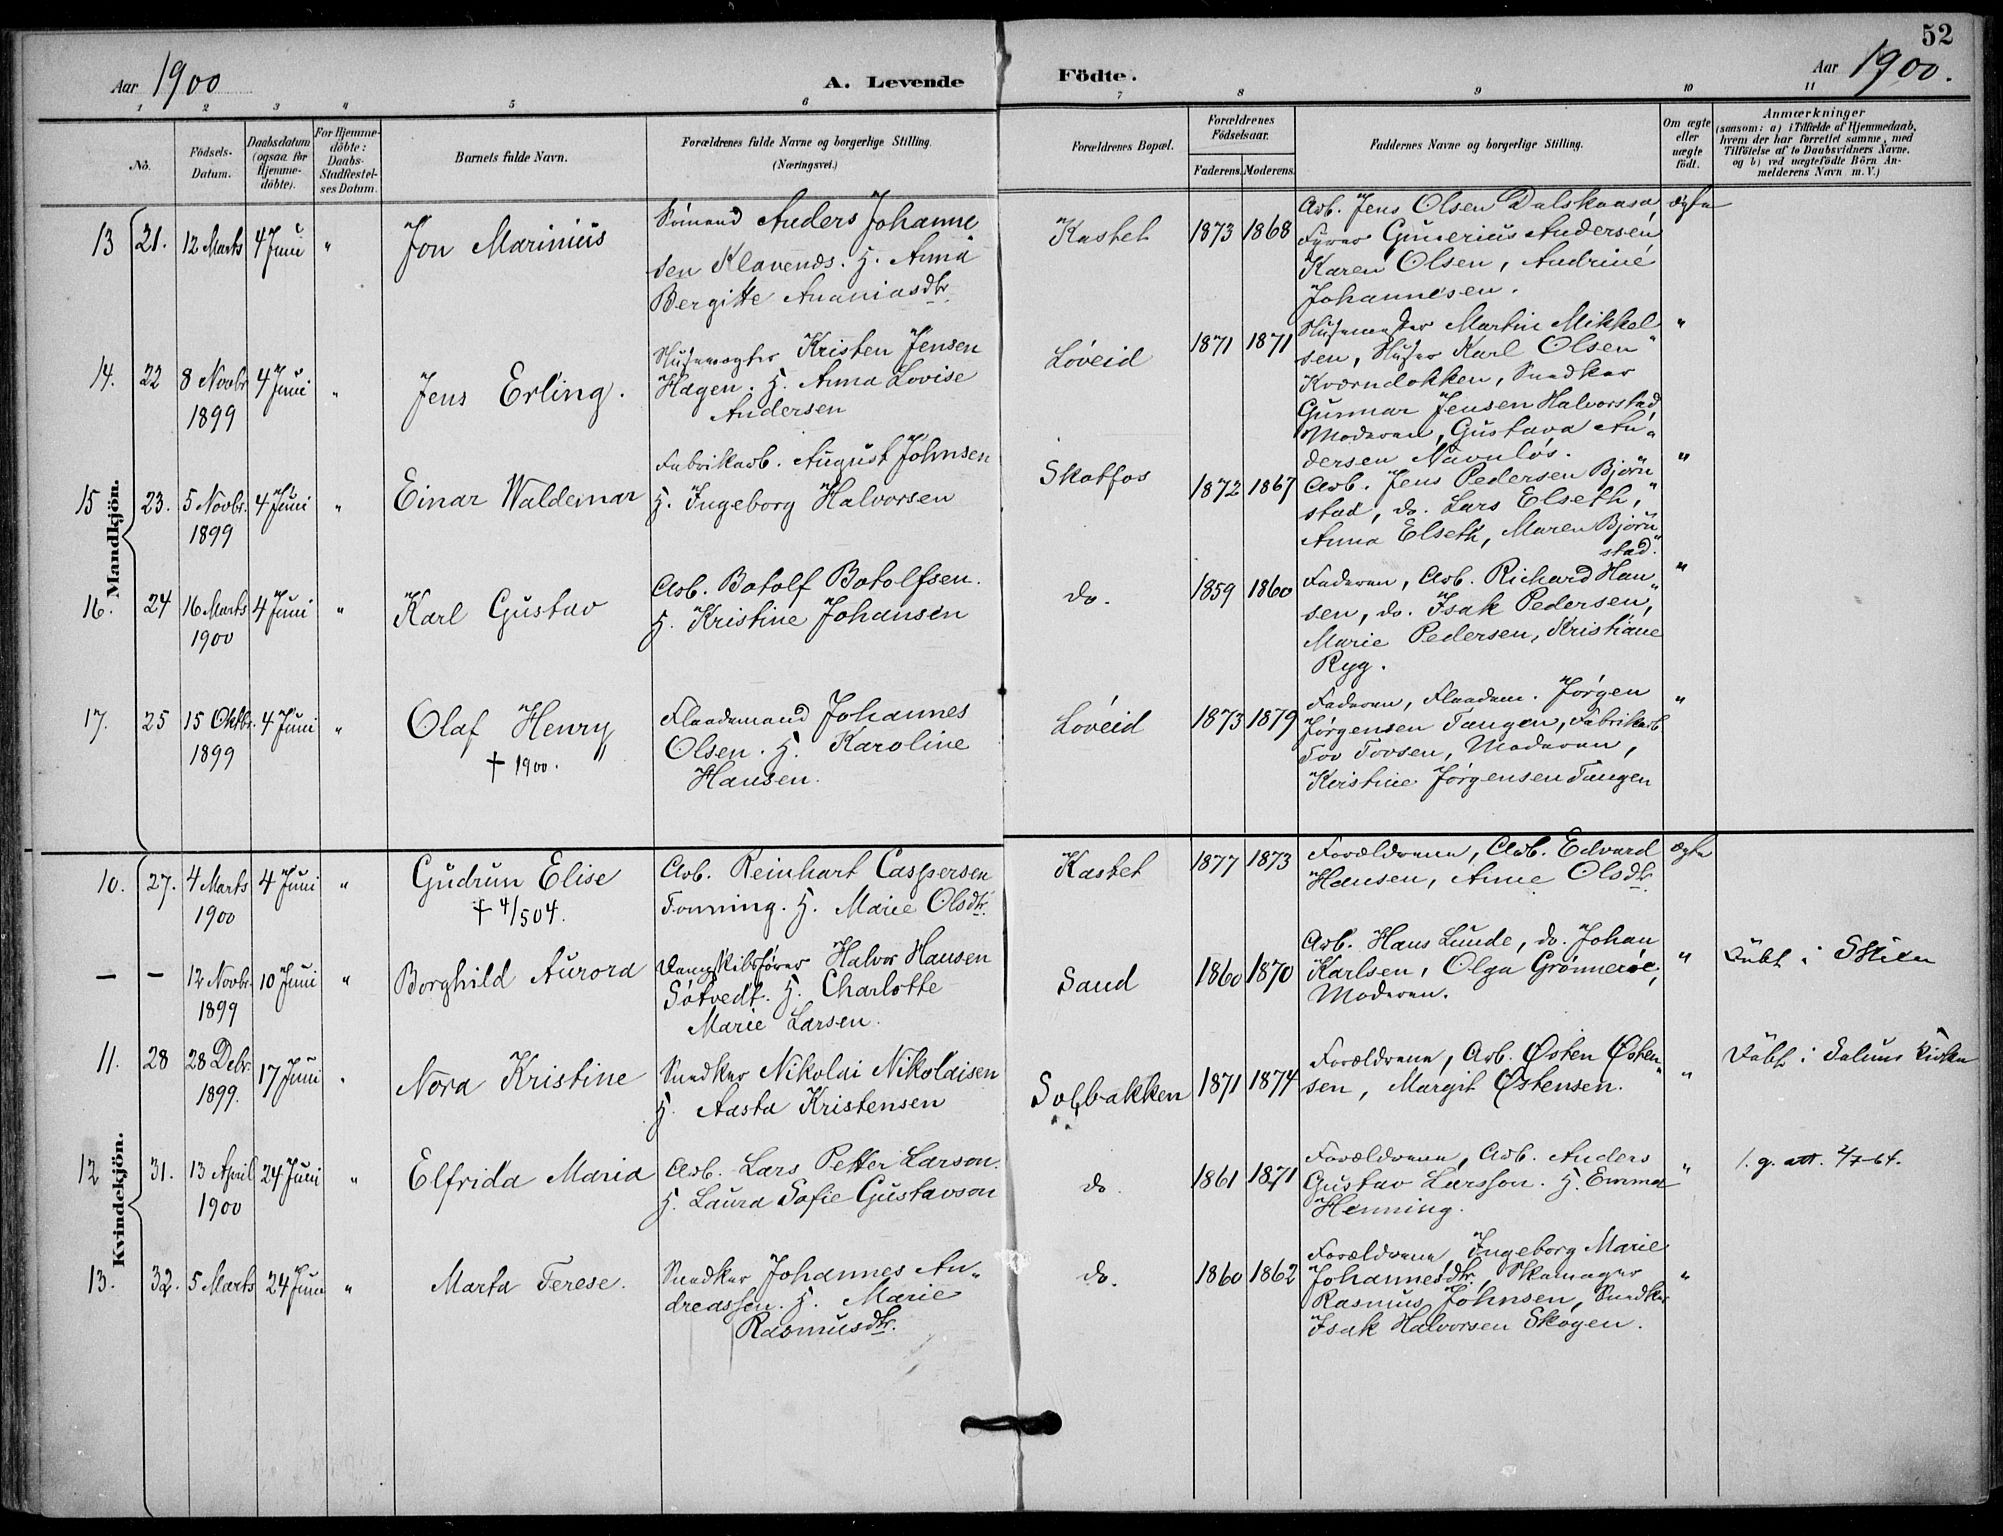 52
Aar 1900
A. Levende Födte.
Aar 1900.
1 2 3 4 5 6 7 8 9 10 11
No.
Födsels-
Datum.
Daabsdatum
(ogsaa for
Hjemme-
döbte).
For Hjemme-
döbte:
Daabs-
Stadfæstel-
ses Datum.
Barnets fulde Navn.
Forældrenes fulde Navne og borgerlige Stilling.
(Næringsvei.)
Forældrenes Bopæl.
Forældrenes
Födselsaar.
Faderens. Moderens.
Faddernes Navne og borgerlige Stilling.
Om ægte
eller
uægte
födt.
Anmærkninger
(saasom: a) i Tilfælde af Hjemmedaab,
hvem der har forrettet samme, med
Tilföielse af to Daabsvidners Navne,
og b) ved uægtefödte Börn An-
melderens Navn m. V.)
Mandkjön.
13 21. 12 Marts 4 Juni " Jon Marinius
Sömand Anders Johanne
sen Klavends. H. Anna
Bergitte Ananiasdtr.
Kastet 1873 1868
Arb. Jens Olsen Dalskaasa,
Fyrer Gunerius Andersen
Karen Olsen, Andrine
Johannesen.
ægte
14. 22 8 Novbr 4 Juni "
1899
Jens Erling.
Slusevogter Kristen Jensen
Hagen. H. Anna Lovise
Andersen
Løveid 1871 1871
Slusemester Martin Mikkel
sen, Karl Olsen
Kværndokken, Snedker
Gunnar Jensen Halvorstad,
Moderen, Gustava An"
dersen Navnløs.
"
15 23. 5 Novbr. 4 Juni "
1899
Einar Waldemar
Fabrikarb. August Johnsen
H. Ingeborg Halvorsen
Skotfos 1872 1867
Arb. Jens Pedersen Björn"
stad, do. Lars Elseth,
Anna Elseth, Maren Björn"
stad.
"
16. 24 16 Marts 4 Juni "
1900
Karl Gustav
Arb. Botolf Botolfsen.
H. Kristine Johansen
do. 1859 1860
Faderen, Arb. Richard Han"
sen, do. Isak Pedersen,
Marie Pedersen, Kristiane
Ryg.
"
17. 25 15 Oktbr. 4 Juni "
1899
Olaf Henry
† 1900.
Flaademand Johannes
Olsen. H. Karoline
Hansen.
Løveid 1873 1879
Faderen, Flaadem. Jørgen
Jørgensen Tangen, Fabrikarb
Tov Tovsen, Moderen,
Kristine Jørgensen Tangen
"
Kvindekjön.
10. 27. 4 Marts 4 Juni "
1900
Gudrun Elise
† 4/5 04.
Arb. Reinhart Caspersen
Fonning. H. Marie Olsdtr.
Kastet 1877 1873
Forældrene, Arb. Edvard
Hansen, Anne Olsdtr.
ægte
— — 12 Novbr. 10 Juni "
1899
Borghild Aurora
Dampskibsfører Halvor Hansen
Søtvedt. H. Charlotte
Marie Larsen.
Sand 1860 1870
Arb. Hans Lunde, do. Johan
Karlsen, Olga Grønnerøe,
Moderen.
" Döbt i Skien
11. 28 28 Debr. 17 Juni "
1899.
Nora Kristine
Snedker Nikolai Nikolaisen
H. Aasta Kristensen
Solbakken 1871 1874
Forældrene, Arb. Østen Østen"
sen, Margit Østensen.
" Döbt i Solum Kirke
12 31. 13 April 24 Juni "
1900
Elfrida Maria
Arb. Lars Petter Larson.
H. Laura Sofie Gustavson
do 1861 1871
Forældrene, Arb. Anders
Gustav Larsson. H. Emma
Henning.
" 1. g. att. 2/7-64.
13. 32. 5 Marts 24 Juni "
Marta Terese.
Snedker Johannes An"
dreassen. H. Marie
Rasmusdtr.
do. 1860 1862
Forældrene, Ingeborg Marie
Johannesdtr. Skomager
Rasmus Johnsen, Snedker
Isak Halvorsen Skogen.
"